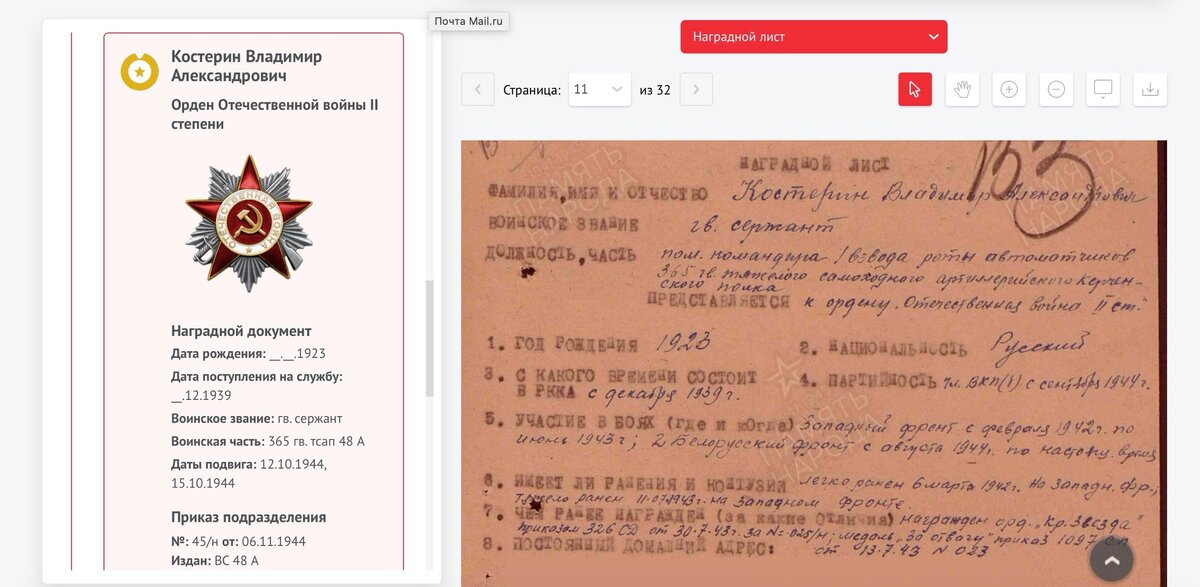 Почта Mail.ru
Костерин Владимир
Александрович
Орден Отечественной войны II
степени
ОТЕЧЕСТВЕННАЯ ВОЙНА
Наградной документ
Дата рождения: __.__.1923
Дата поступления на службу:
__.12.1939
Воинское звание: гв. сержант
Воинская часть: 365 гв. тсап 48 А
Даты подвига: 12.10.1944,
15.10.1944
Приказ подразделения
№: 45/н от: 06.11.1944
Издан: ВС 48 А
Наградной лист
Страница: 11 из 32
153
НАГРАДНОЙ ЛИСТ
ФАМИЛИЯ, ИМЯ И ОТЧЕСТВО Костерин Владимир Александрович
ВОИНСКОЕ ЗВАНИЕ гв. сержант
ДОЛЖНОСТЬ, ЧАСТЬ пом. командира 1 взвода роты автоматчиков
365 гв. тяжелого самоходного артиллерийского Керчен-
ского полка
ПРЕДСТАВЛЯЕТСЯ к ордену „Отечественная война II ст."
1. ГОД РОЖДЕНИЯ 1923 2. НАЦИОНАЛЬНОСТЬ Русский
3. С КАКОГО ВРЕМЕНИ СОСТОИТ 4. ПАРТИЙНОСТЬ чл. ВКП(б) с сентября 1944 г.
В РККА с декабря 1939 г.
5. УЧАСТИЕ В БОЯХ (где и кОгда) Западный фронт с февраля 1942 г. по
июль 1943 г; 2 Белорусский фронт с августа 1944 г. по настоящ. время
6. ИМЕЕТ ЛИ РАНЕНИЯ И КОНТУЗИИ легко ранен 6 марта 1942 г. на Западн. фр.;
тяжело ранен 11.07.1943 г. на Западном фронте.
7. ЧЕМ РАНЕЕ НАГРАЖДЕН (за какие отличия) награжден орд. „Кр. Звезда"
приказом 326 СД от 30.7.43 г. за №-025/н; медаль „за отвагу" приказ 1097 СП
8. ПОСТОЯННЫЙ ДОМАШНИЙ АДРЕС: от 13.7.43 N 023
ПАМЯТЬ НАРОДА